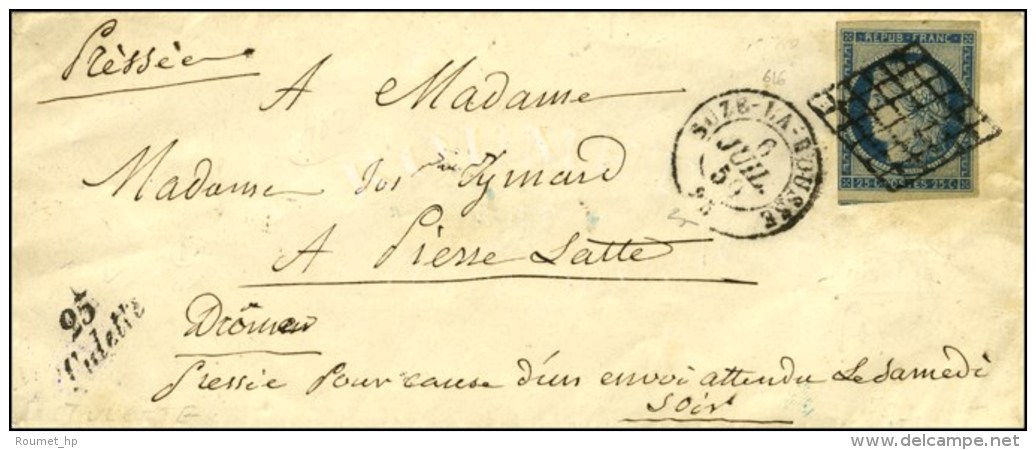 Prèssée
A Madame
Madame Aymard
A Pierre Latte
Drôme
Pressée Pour cause d'un envoi attendu Le Samedi
Soir
REPUB FRANC
25 C POSTES 25 C
SUZE-LA-ROUSSE
6
JUIL.
50
25
Tulette
616
TULETTE
Roumet_hp
www.delcampe.net